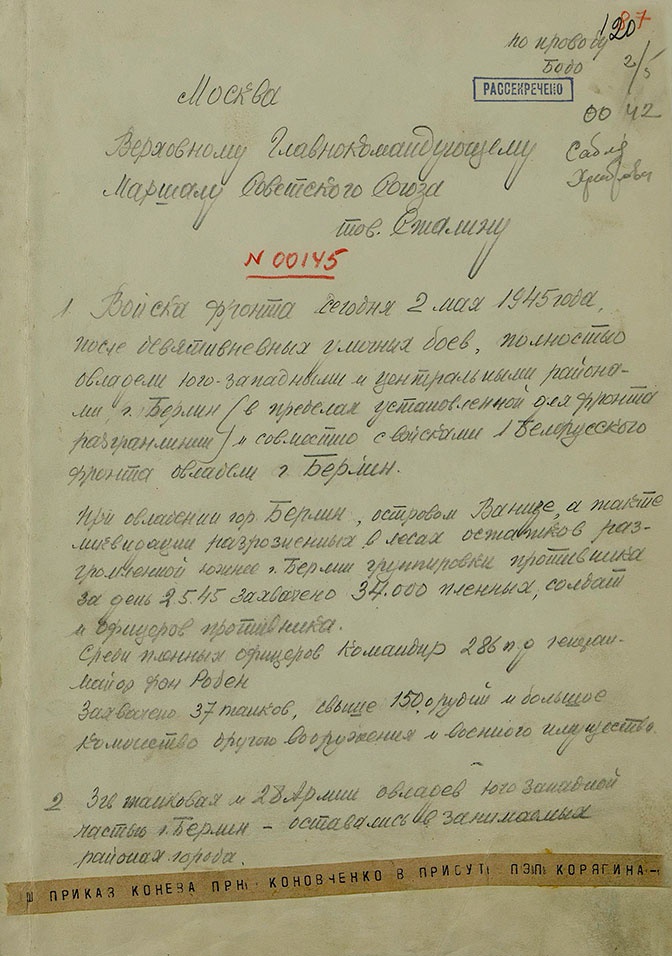 120
87
по проводу
Бодо
2/5
РАССЕКРЕЧЕНО
00 42
Москва
Верховному Главнокомандующему
Маршалу Советского Союза
тов. Сталину
N 00145
1 Войска фронта сегодня 2 мая 1945 года,
после девятидневных уличных боев, полностью
овладели юго-западными и центральными района-
ми г. Берлин (в пределах установленной для фронта
разгранлинии) и совместно с войсками 1 Белорусского
фронта овладели г. Берлин.
При овладении гор. Берлин, островом Ванзее, а также
ликвидации разрозненных в лесах остатков раз-
громленной южнее г. Берлин группировки противника
за день 2.5.45 захвачено 34.000 пленных, солдат
и офицеров противника.
Среди пленных офицеров командир 286 п.д генерал-
майор фон Робен
Захвачено 37 танков, свыше 150 орудий и большое
количество другого вооружения и военного имущества.
2 3 гв танковая и 28 Армии овладев юго западной
частью г. Берлин – оставались в занимаемых
районах города.
ПРИКАЗ КОНЕВА ПРН КОНОВЧЕНКО В ПРИСУТ ПЭП КОРЯГИНА-